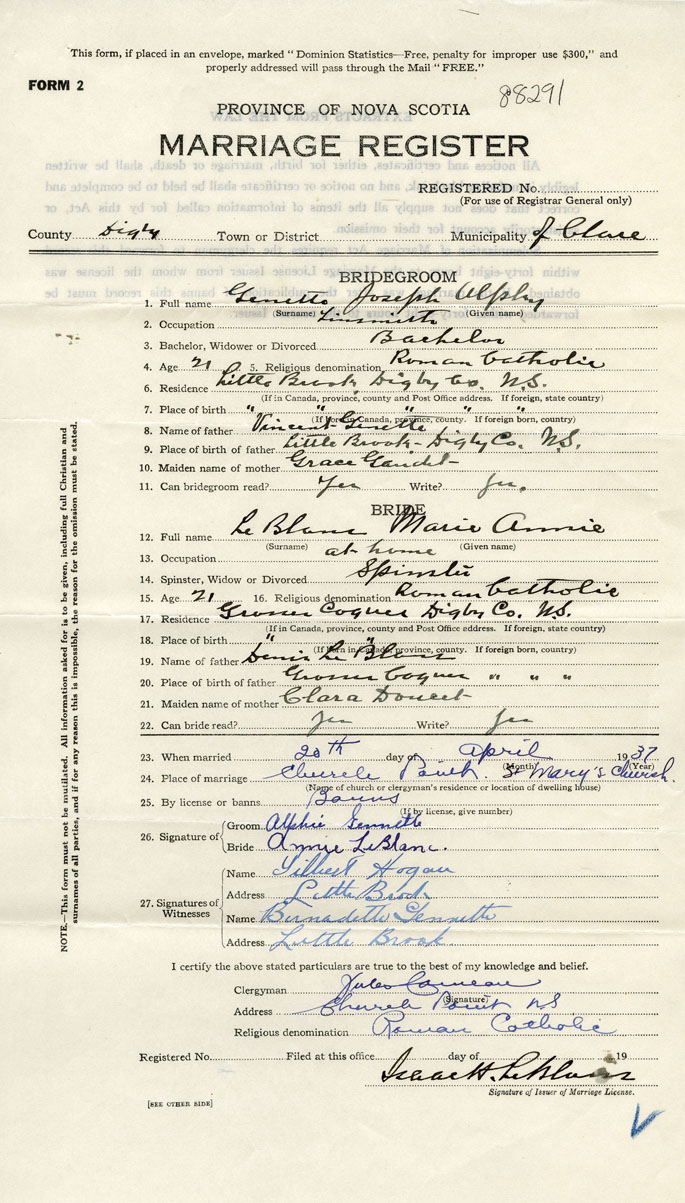 This form, if placed in an envelope, marked "Dominion Statistics—Free, penalty for improper use $300," and
properly addressed will pass through the Mail "FREE."
FORM 2
88291
PROVINCE OF NOVA SCOTIA
MARRIAGE REGISTER
REGISTERED No.
(For use of Registrar General only)
County Digby Town or District Municipality of Clare
BRIDEGROOM
1. Full name Ginette Joseph Alphy
(Surname) (Given name)
2. Occupation Tinsmith
3. Bachelor, Widower or Divorced Bachelor
4. Age 21 5. Religious denomination Roman Catholic
6. Residence Little Brook, Digby Co. N.S.
(If in Canada, province, county and Post Office address. If foreign, state country)
7. Place of birth " " " " "
(If born in Canada, province, county. If foreign born, country)
8. Name of father Vincent Ginette
9. Place of birth of father Little Brook - Digby Co. N.S.
10. Maiden name of mother Grace Gaudet
11. Can bridegroom read? Yes Write? Yes.
BRIDE
12. Full name Le Blanc Marie Annie
(Surname) (Given name)
13. Occupation at home
14. Spinster, Widow or Divorced Spinster
15. Age 21 16. Religious denomination Roman Catholic
17. Residence Grosses Coques Digby Co. N.S.
(If in Canada, province, county and Post Office address. If foreign, state country)
18. Place of birth " "
(If born in Canada, province, county. If foreign born, country)
19. Name of father Denis Le Blanc
20. Place of birth of father Grosses Coques " " "
21. Maiden name of mother Clara Doucet
22. Can bride read? Yes Write? Yes
23. When married 20th day of April 1937
(Month) (Year)
24. Place of marriage Church Point. St Mary's Church.
(Name of church or clergyman's residence or location of dwelling house)
25. By license or banns Banns
(If by license, give number)
26. Signature of
Groom Alphie Gennette
Bride Annie LeBlanc.
27. Signatures of Witnesses
Name Gilbert Hogan
Address Little Brook
Name Bernadette Gennette
Address Little Brook
I certify the above stated particulars are true to the best of my knowledge and belief.
Clergyman Jules Comeau
(Signature)
Address Church Point NS
Religious denomination Roman Catholic
Registered No. Filed at this office day of 19
Isaac H. LeBlanc
Signature of Issuer of Marriage License.
[SEE OTHER SIDE]
NOTE.—This form must not be mutilated. All information asked for is to be given, including full Christian and
surnames of all parties, and if for any reason this is impossible, the reason for the omission must be stated.